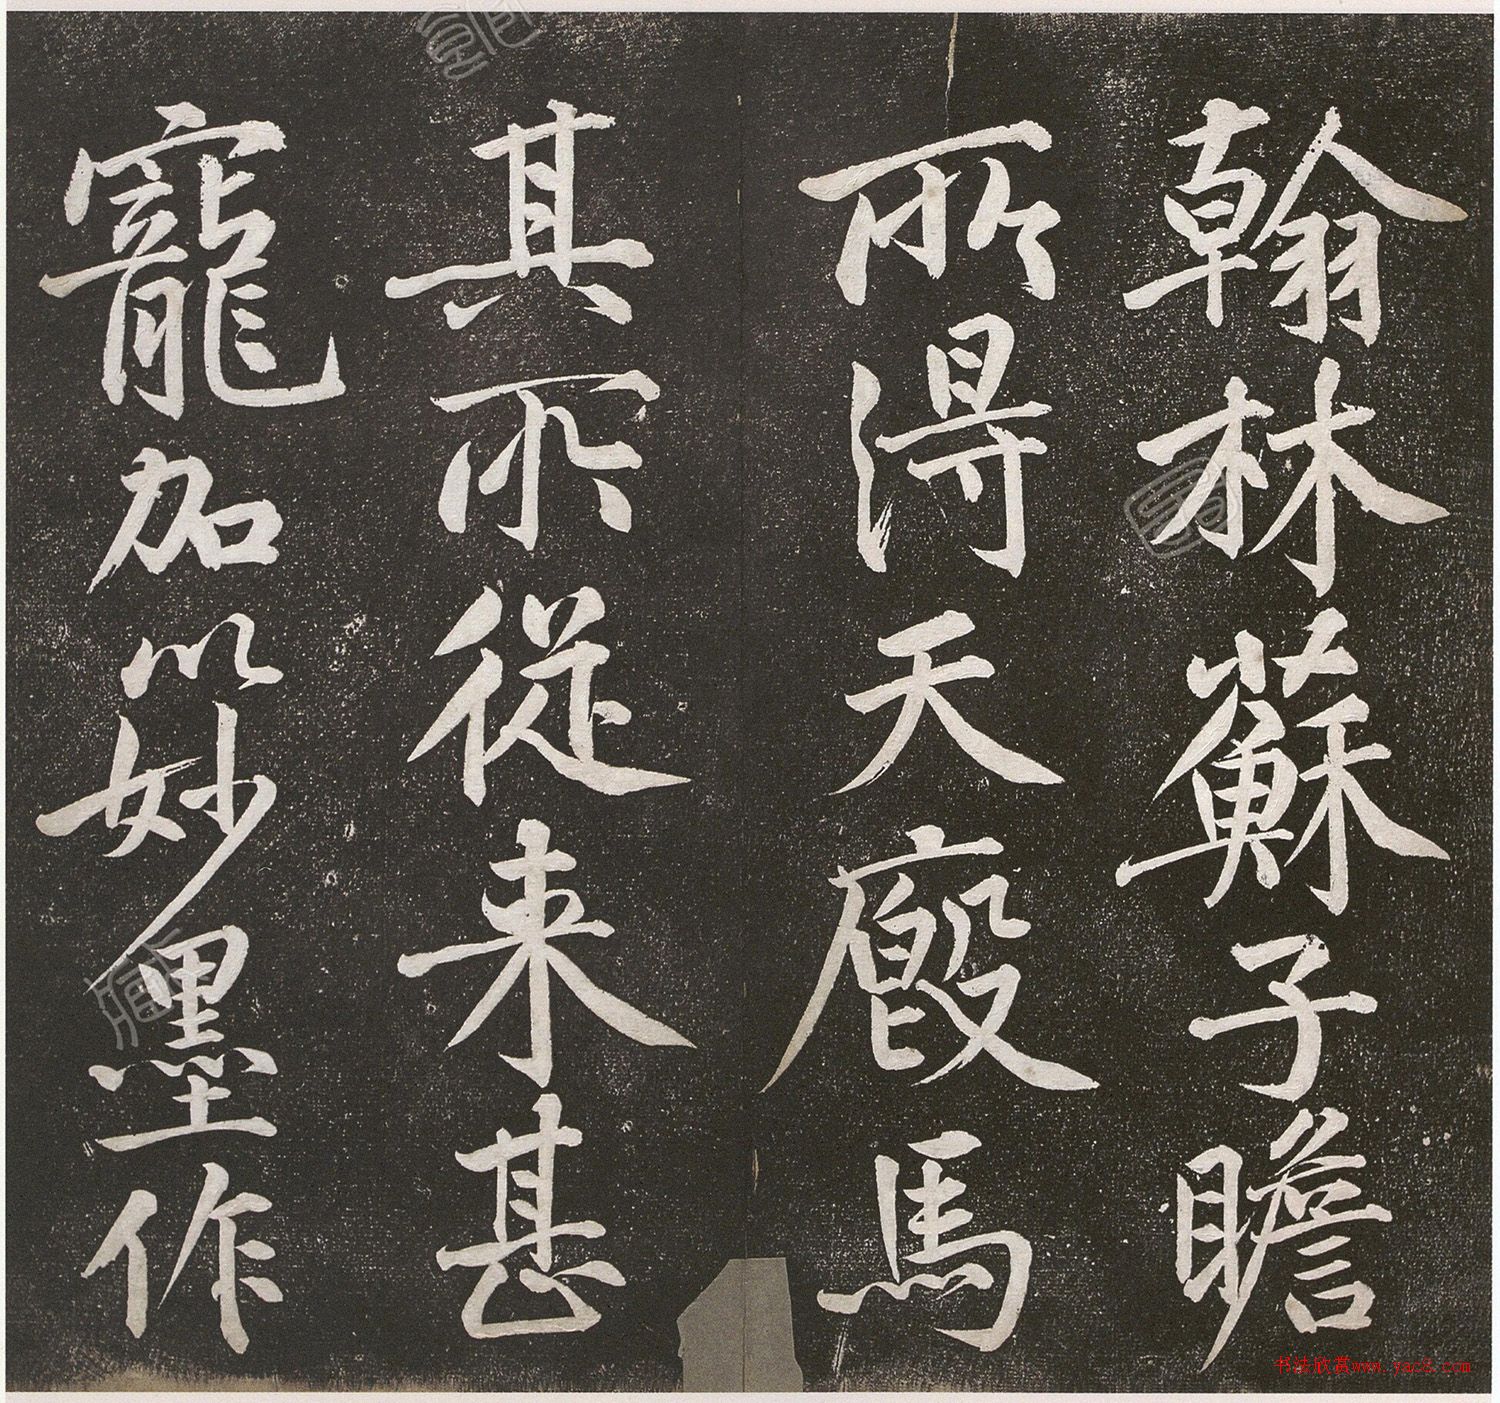 翰林蘇子瞻
所得天廄馬
其所從来甚
寵加以妙墨作
书法欣赏www.yac8.com